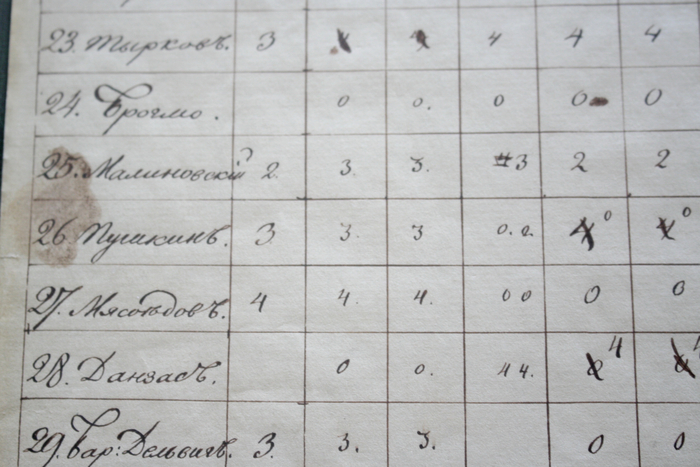 23. Тырковъ. 3 4 4 4
24.Броглио. 0 0. 0 0 0
25. Малиновскій 2. 3. 3. 3 2 2
26 Пушкинъ. 3. 3. 3 0. 0. 4 0 4 0
27. Мясоѣдовъ. 4 4. 4. 0 0 0 0
28. Данзасъ. 0 0. 4 4. 0 4 0 4
29. Бар: Дельвигъ. 3. 3. 3. 0 0